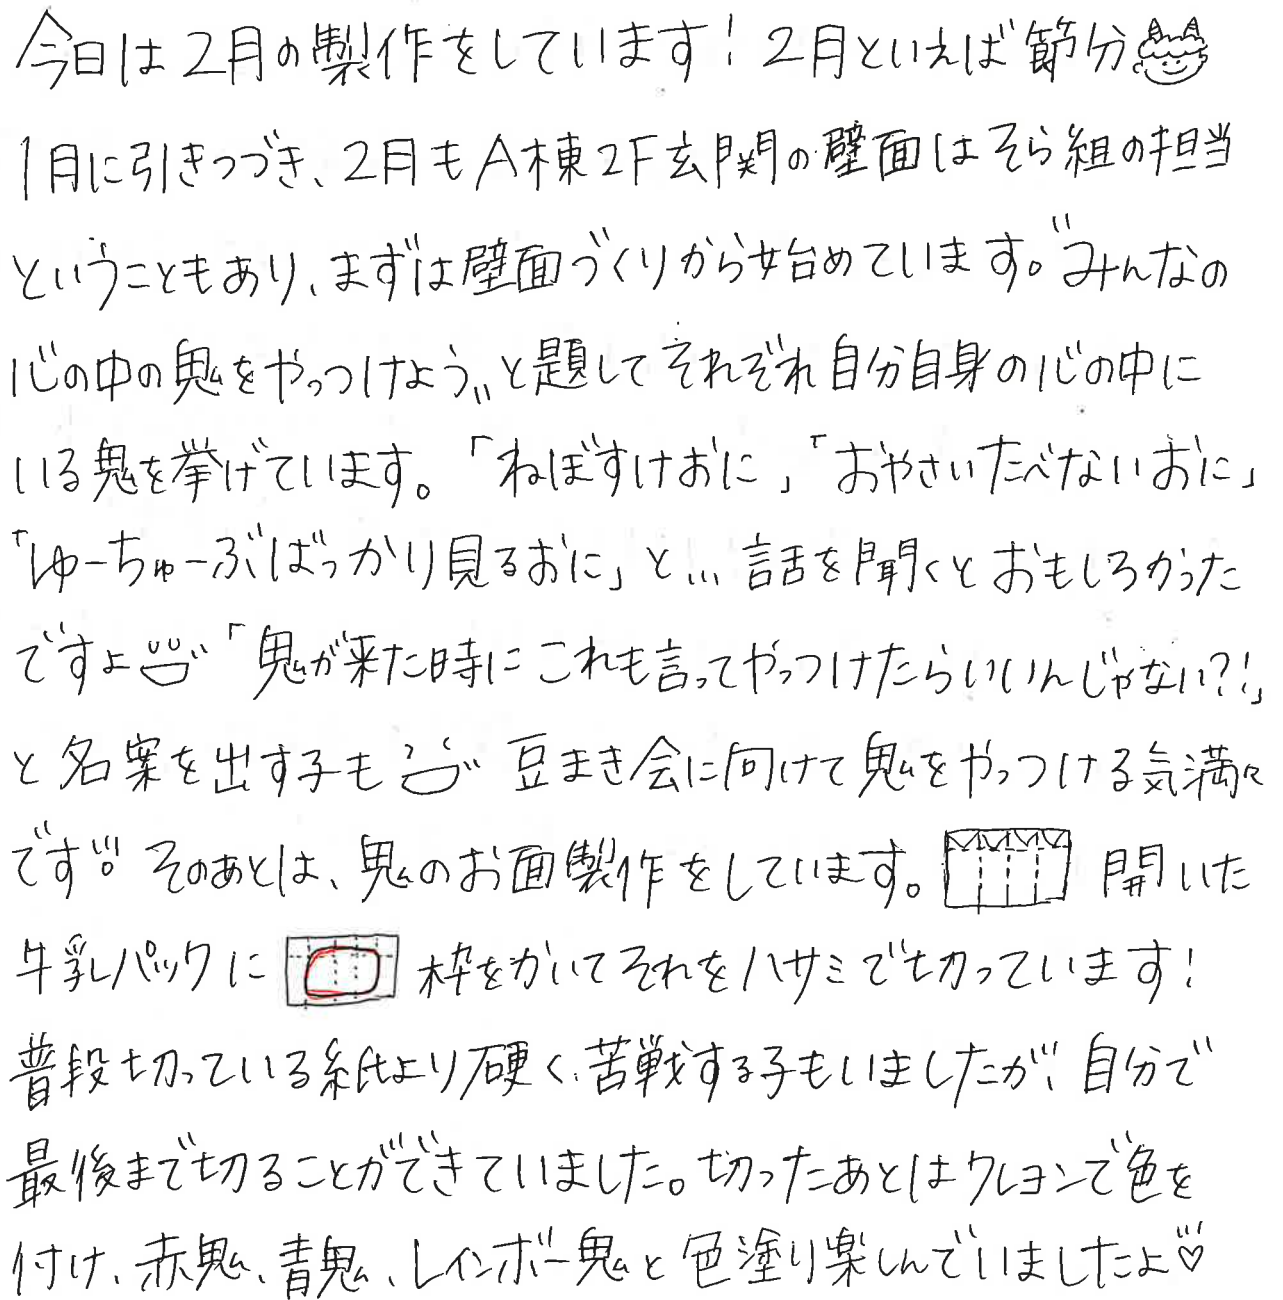 今日は2月の製作をしています!2月といえば節分
1月に引きつづき、2月もA棟2F玄関の壁面はそら組の担当
ということもあり、まずは壁面づくりから始めています。"みんなの
心の中の鬼をやっつけよう"と題してそれぞれ自分自身の心の中に
いる鬼を挙げています。「ねぼすけおに」「おやさいたべないおに」
「ゆーちゅーぶばっかり見るおに」と…話を聞くとおもしろかった
ですよ「鬼が来た時にこれも言ってやっつけたらいいんじゃない?!」
と名案を出す子も 豆まき会に向けて鬼をやっつける気満々
です!!。そのあとは、鬼のお面製作をしています。開いた
牛乳パックに 枠をかいてそれをハサミで切っています!
普段切っている紙より硬く、苦戦する子もいましたが、自分で
最後まで切ることができていました。切ったあとはクレヨンで色を
付け、赤鬼、青鬼、レインボー鬼と色塗り楽しんでいましたよ♡